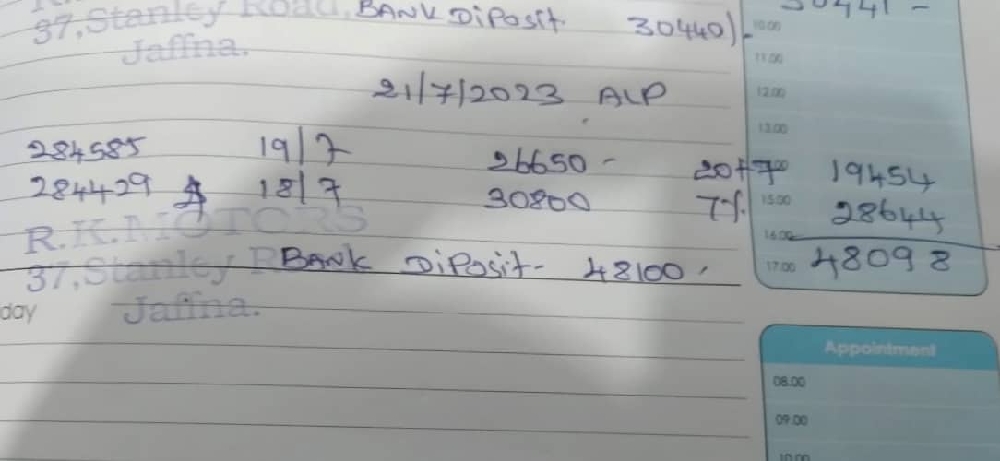 37, Stanley Road, BANK DiPosit 30440/-
Jaffna.
10.00
11.00
21/7/2023 ALP
12.00
13.00
284585 19/7 26650 - 20+7 19454
284429 18/7 30800 7% 15.00 28644
R.K.MOTORS
16.00
37, Stanley BANK DiPosit - 48100. 17.00 48098
day Jaffna.
Appointment
08.00
09.00
10.00